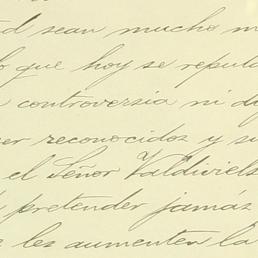 d sean mucho m
lo que hoy se reputa
controversia ni d
er reconocidos y s
el Señor Valdiviels
pretender jamás
les aumenten la